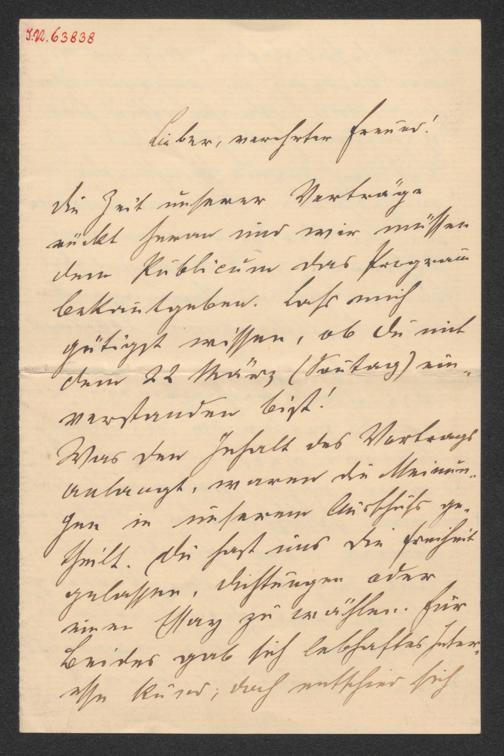 I.N. 63838
Lieber, verehrter Freund!
Die Zeit unserer Vorträge
rückt heran und wir müssen
dem Publicum das Program
bekantgeben. Lass mich
gütigst wissen, ob Du mit
dem 22 März (Sontag) ein-
verstanden bist!
Was den Inhalt des Vortrags
anlangt, waren die Meinun-
gen in unserem Ausschuss ge-
theilt. Du hast uns die Freiheit
gelassen, Dichtungen oder
einen Essay zu wählen. Für
Beides gab sich lebhaftes Inter-
esse kund; doch entschied sich